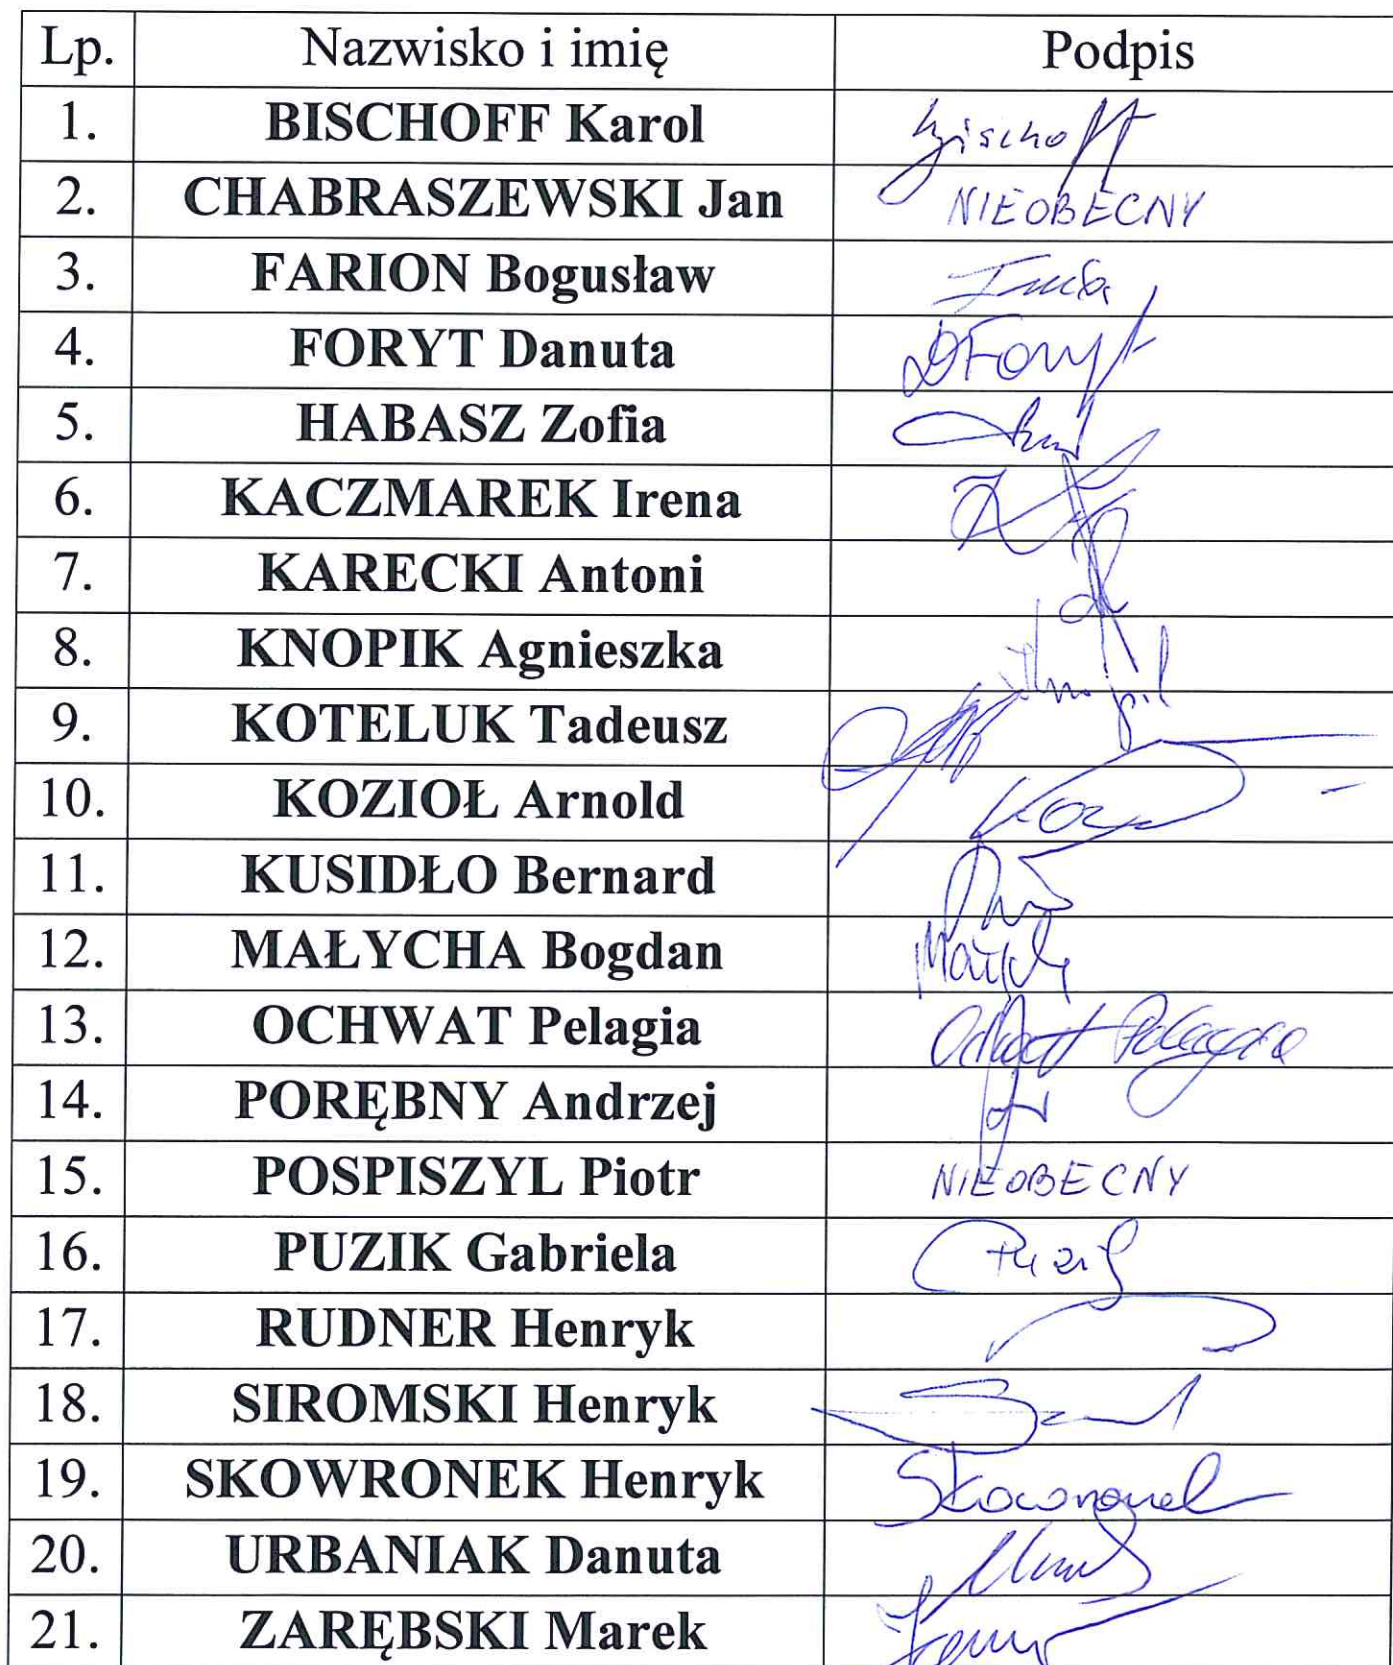 Lp. Nazwisko i imię Podpis
1. BISCHOFF Karol Bischoff
2. CHABRASZEWSKI Jan NIEOBECNY
3. FARION Bogusław
4. FORYT Danuta DForyt
5. HABASZ Zofia
6. KACZMAREK Irena
7. KARECKI Antoni
8. KNOPIK Agnieszka
9. KOTELUK Tadeusz
10. KOZIOŁ Arnold
11. KUSIDŁO Bernard
12. MAŁYCHA Bogdan
13. OCHWAT Pelagia Ochwat Pelagia
14. PORĘBNY Andrzej
15. POSPISZYL Piotr NIEOBECNY
16. PUZIK Gabriela Puzik
17. RUDNER Henryk
18. SIROMSKI Henryk
19. SKOWRONEK Henryk Skowronek
20. URBANIAK Danuta
21. ZARĘBSKI Marek